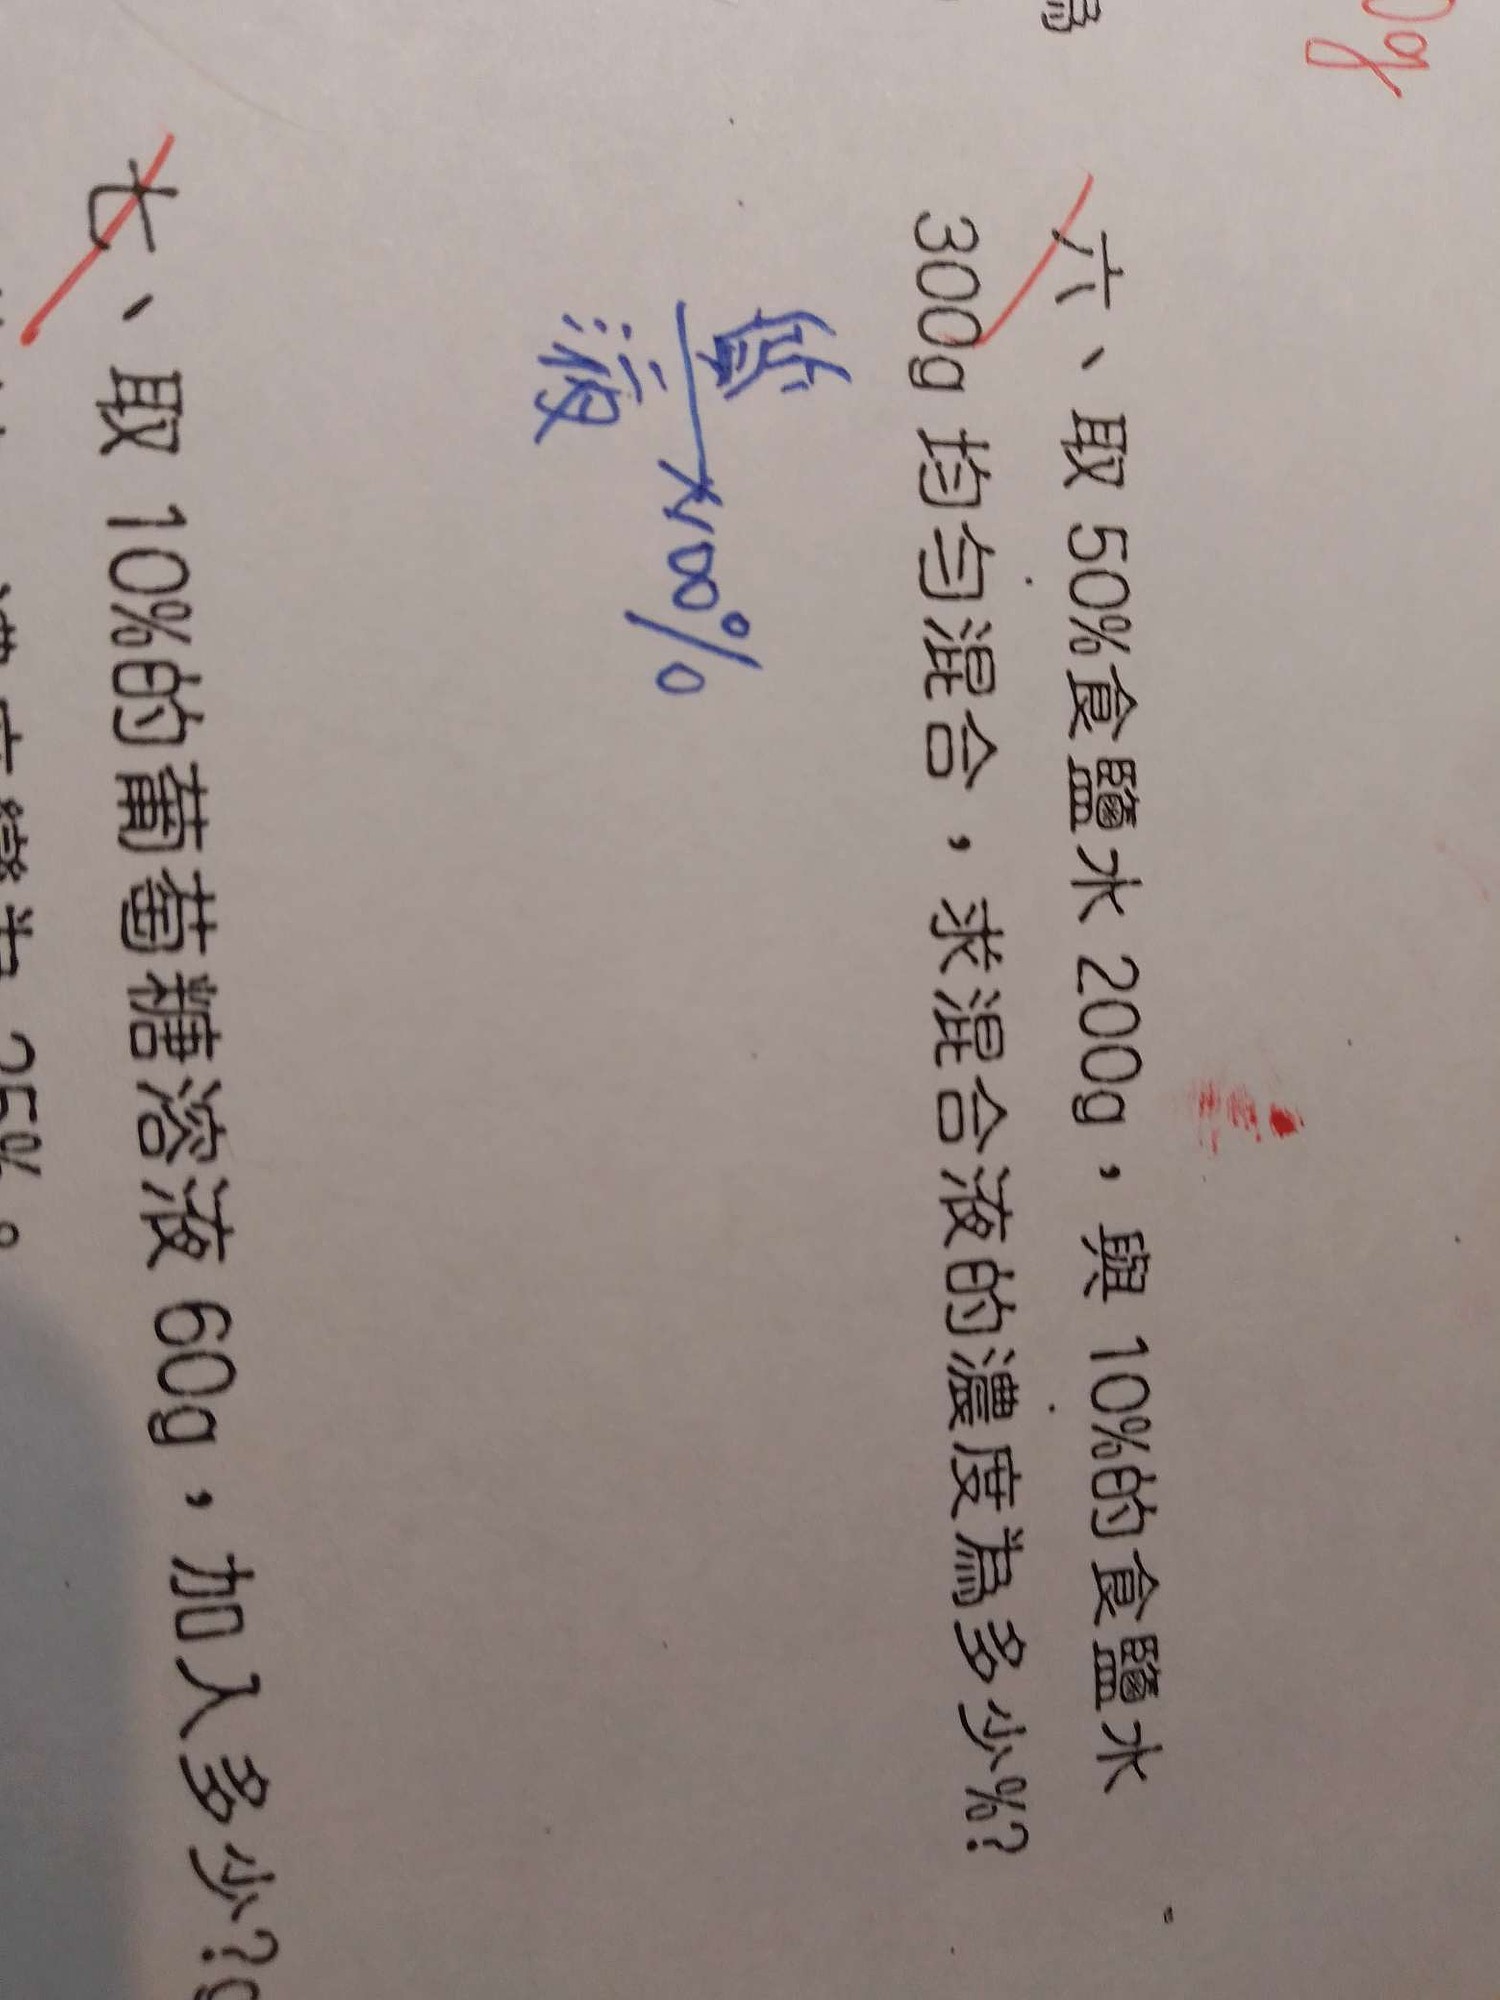 0g
為
六、取 50%食鹽水 200g，與 10%的食鹽水
300g 均勻混合，求混合液的濃度為多少%?
液 ×100%
七、取 10%的葡萄糖溶液 60g，加入多少?g
濃度變為 25%。